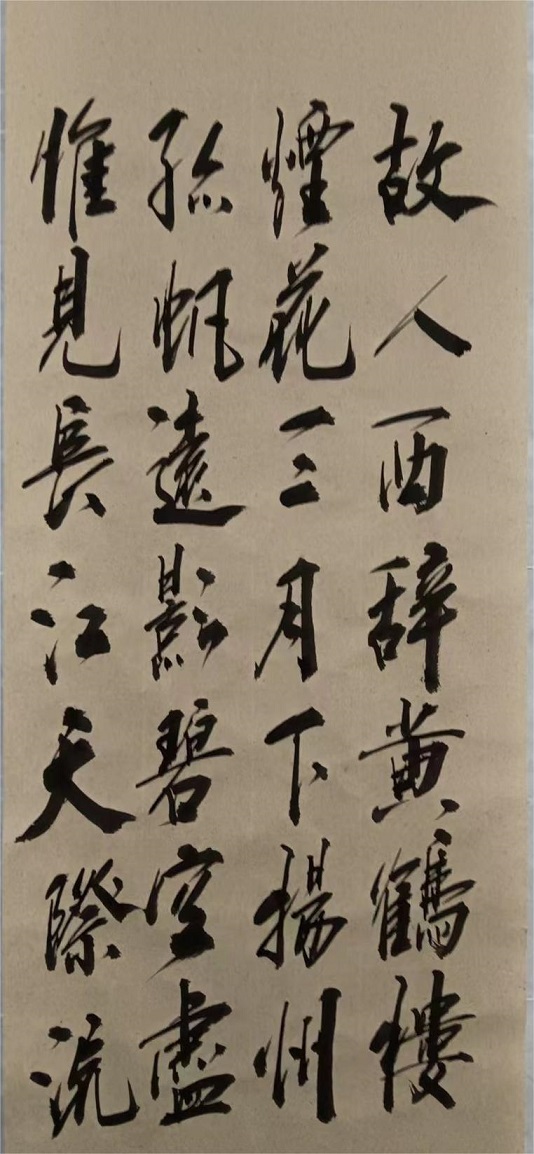 故人西辞黄鶴樓
煙花三月下揚州
孤帆遠影碧空盡
惟見長江天際流